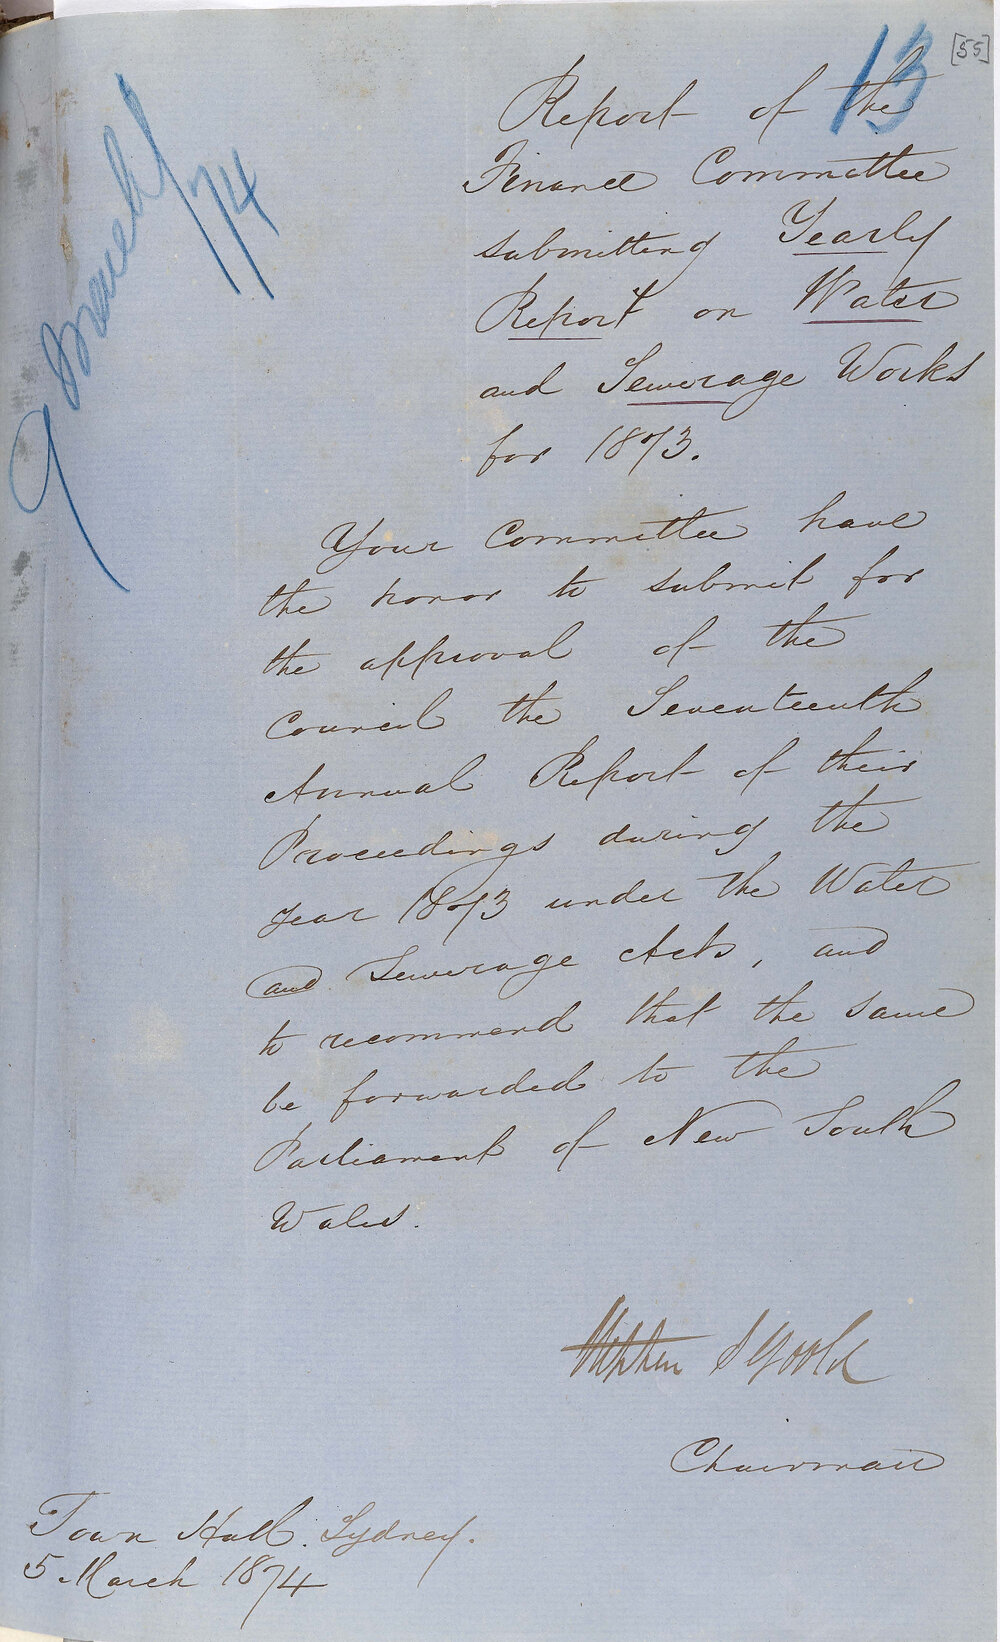 13
[55]
9 March/74
Report of the
Finance Committee
submitting Yearly
Report on Water
and Sewerage Works
for 1873.
Your Committee have
the honor to submit for
the approval of the
Council the Seventeenth
Annual Report of their
Proceedings during the
year 1873 under the Water
and Sewerage Acts, and
to recommend that the same
be forwarded to the
Parliament of New South
Wales.
Stephen S Goold
Chairman
Town Hall. Sydney.
5 March 1874